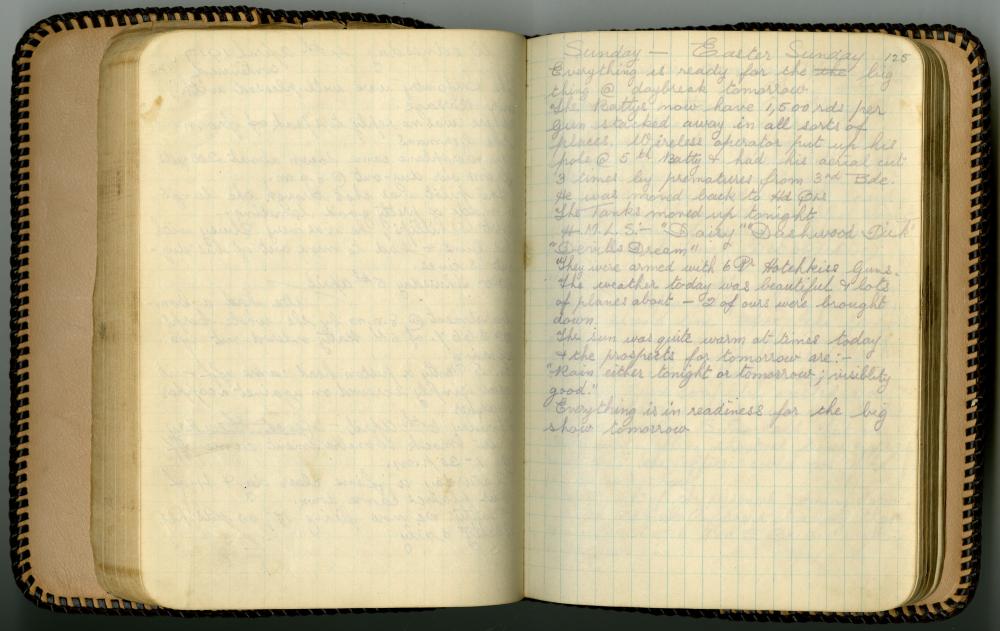 Sunday — Easter Sunday 125
Everything is ready for the the big
thing @ daybreak tomorrow
The Battys now have 1,500 rds per
gun stacked away in all sorts of
places. Wireless operator put up his
pole @ 5th Batty & had his aerial cut
3 times by prematures from 3rd Bde.
He was moved back to Hd Qrs
The Tanks moved up tonight
H.M.L.S:- "Daisy" "Dashwood Dick"
"Devills Dream"
They were armed with 6 Pr Hotchkiss Guns.
The weather today was beautiful & lots
of planes about — 2 of ours were brought
down
The sun was quite warm at times today
& the prospects for tomorrow are:-
"Rain either tonight or tomorrow; visiblity
good."
Everything is in readiness for the big
show tomorrow